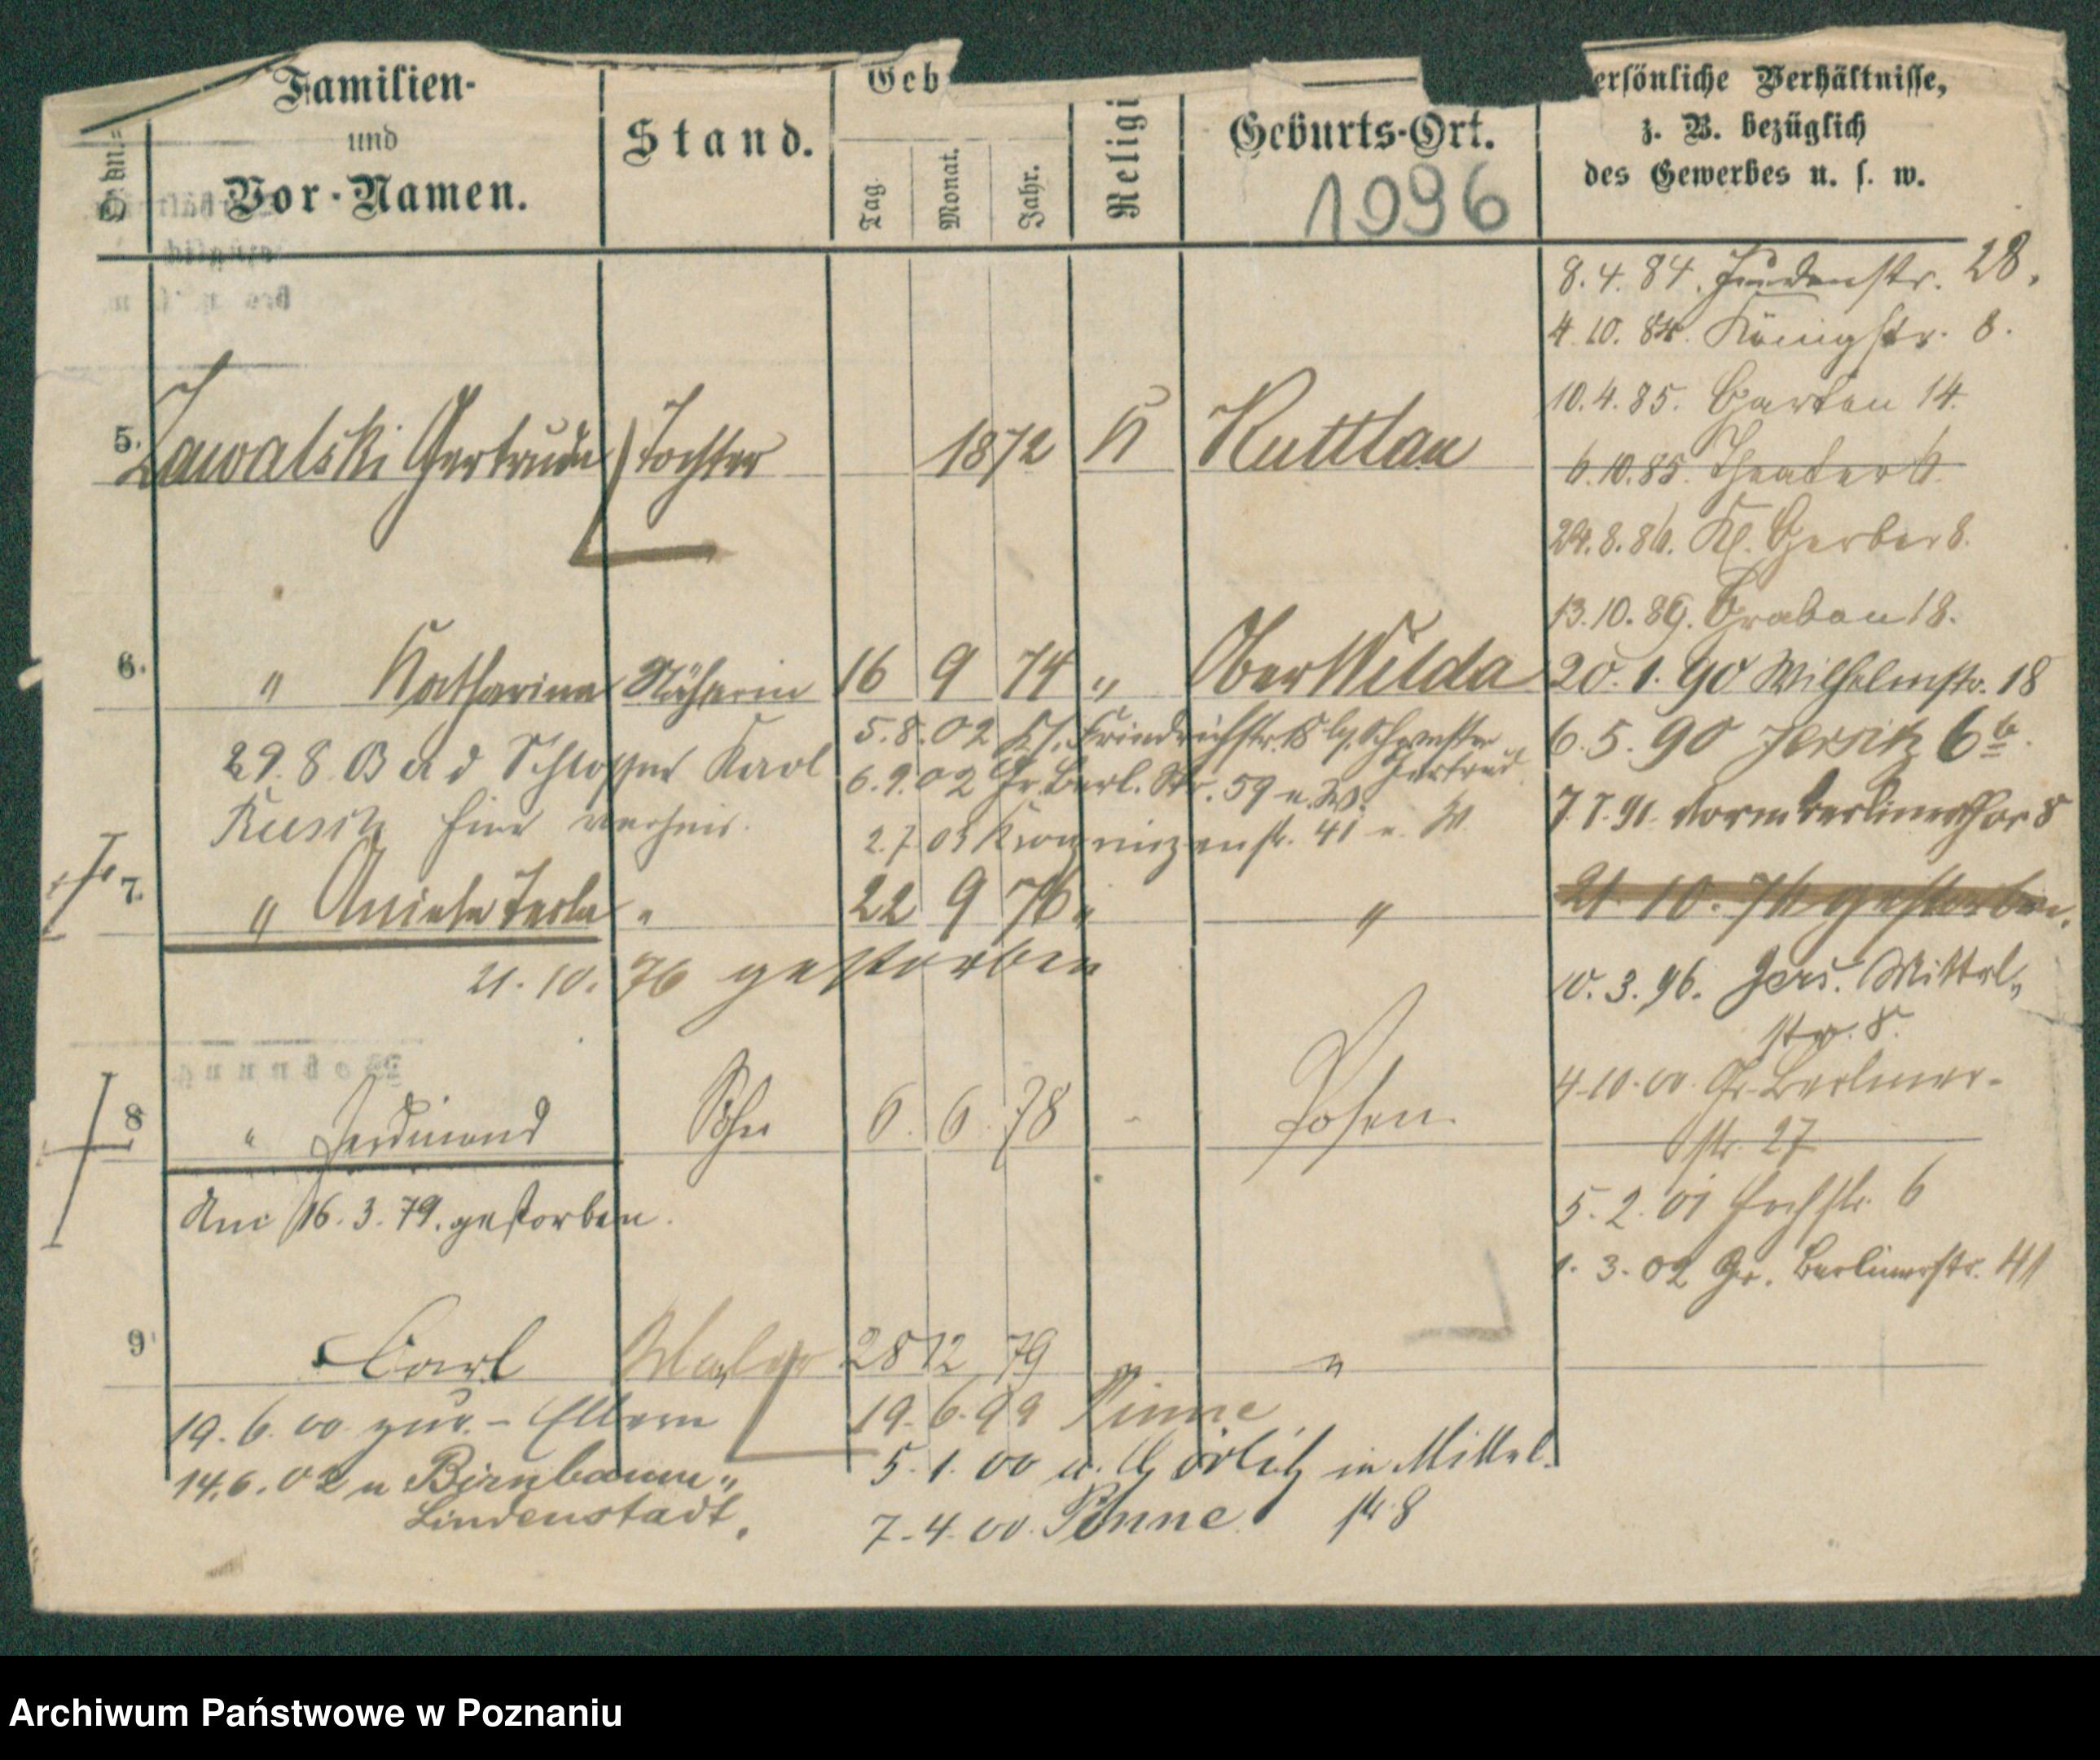 Familien-
und
Vor-Namen.
Stand.
Geb
Tag.
Monat.
Jahr.
Religi
Geburts-Ort.
1996
ersönliche Verhältnisse,
z. B. bezüglich
des Gewerbes u. s. w.
8. 4. 84. Judenstr. 28.
4. 10. 84. Königstr. 8.
10. 4. 85. Garten 14.
5. Zawalski Gertrude Tochter 1872 K Kuttlau
6. 10. 85. Theater 6.
24. 8. 86. Kl. Gerber 8.
13. 10. 89. Graben 18.
6. " Katharina Näherin 16 9 74 " Ober Wilda
20. 1. 90 Wilhelmstr. 18
5. 8. 02 Kl. Friedrichstr. 18 Schwester
Gertrud
6. 5. 90 Jersitz 6b.
29. 8. Schlosser Karl
6. 9. 02 Gr. Berl. Str. 59 u. W.
2. 7. 03 Kronprinzenstr. 41 u. W.
7. 7. 91. vorm Berlinerthor 8
7. " " 22 9 76 " "
21. 10. 76 gestorben.
21. 10. 76 gestorben
10. 3. 96. Jers. Mittel-
str. 8.
8 " Ferdinand Sohn 6. 6. 78 - Posen.
4. 10. 00. Gr. Berliner-
str. 27
Am 16. 3. 79. gestorben.
5. 2. 01 Hochstr. 6
1. 3. 02 Gr. Berlinerstr. 41
9 Carl Maler 28 12 79 "
19. 6. 00 zur. - Eltern
19. 6. 99 Pinne
14. 6. 02 n Birnbaum-
Lindenstadt.
5. 1. 00 u. Görlitz in Mittel.
str 8
7. 4. 00. Pinne
Wohnung
Archiwum Państwowe w Poznaniu